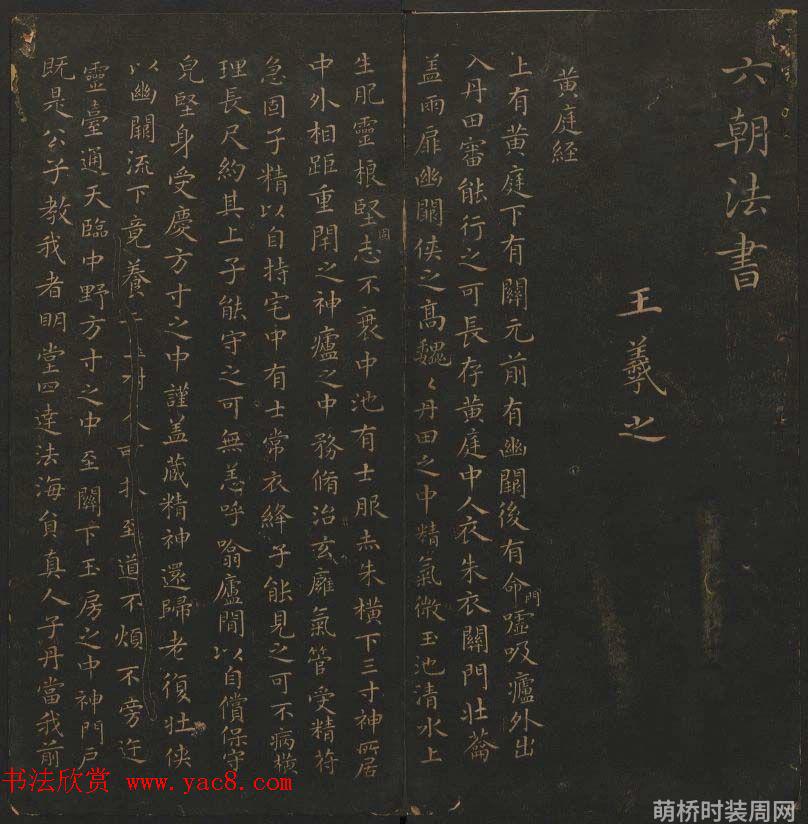 六朝法書
王羲之
黄庭経
上有黄庭下有關元前有幽闕後有命門嘘吸廬外出
入丹田審能行之可長存黄庭中人衣朱衣關門壮蘥
盖兩扉幽闕侠之高魏〻丹田之中精氣微玉池清水上
生肥靈根堅固志不衰中池有士服赤朱横下三寸神所居
中外相距重閇之神廬之中務脩治玄廱氣管受精符
急固子精以自持宅中有士常衣絳子能見之可不病横
理長尺約其上子能守之可無恙呼噏廬間以自償保守
皃堅身受慶方寸之中謹盖蔵精神還歸老復壮侠
以幽闕流下竟養子玉樹不可扶至道不煩不旁迕
靈臺通天臨中野方寸之中至關下玉房之中神門戸
既是公子教我者明堂四達法海負真人子丹當我前
书法欣赏 www.yac8.com
萌桥时装周网